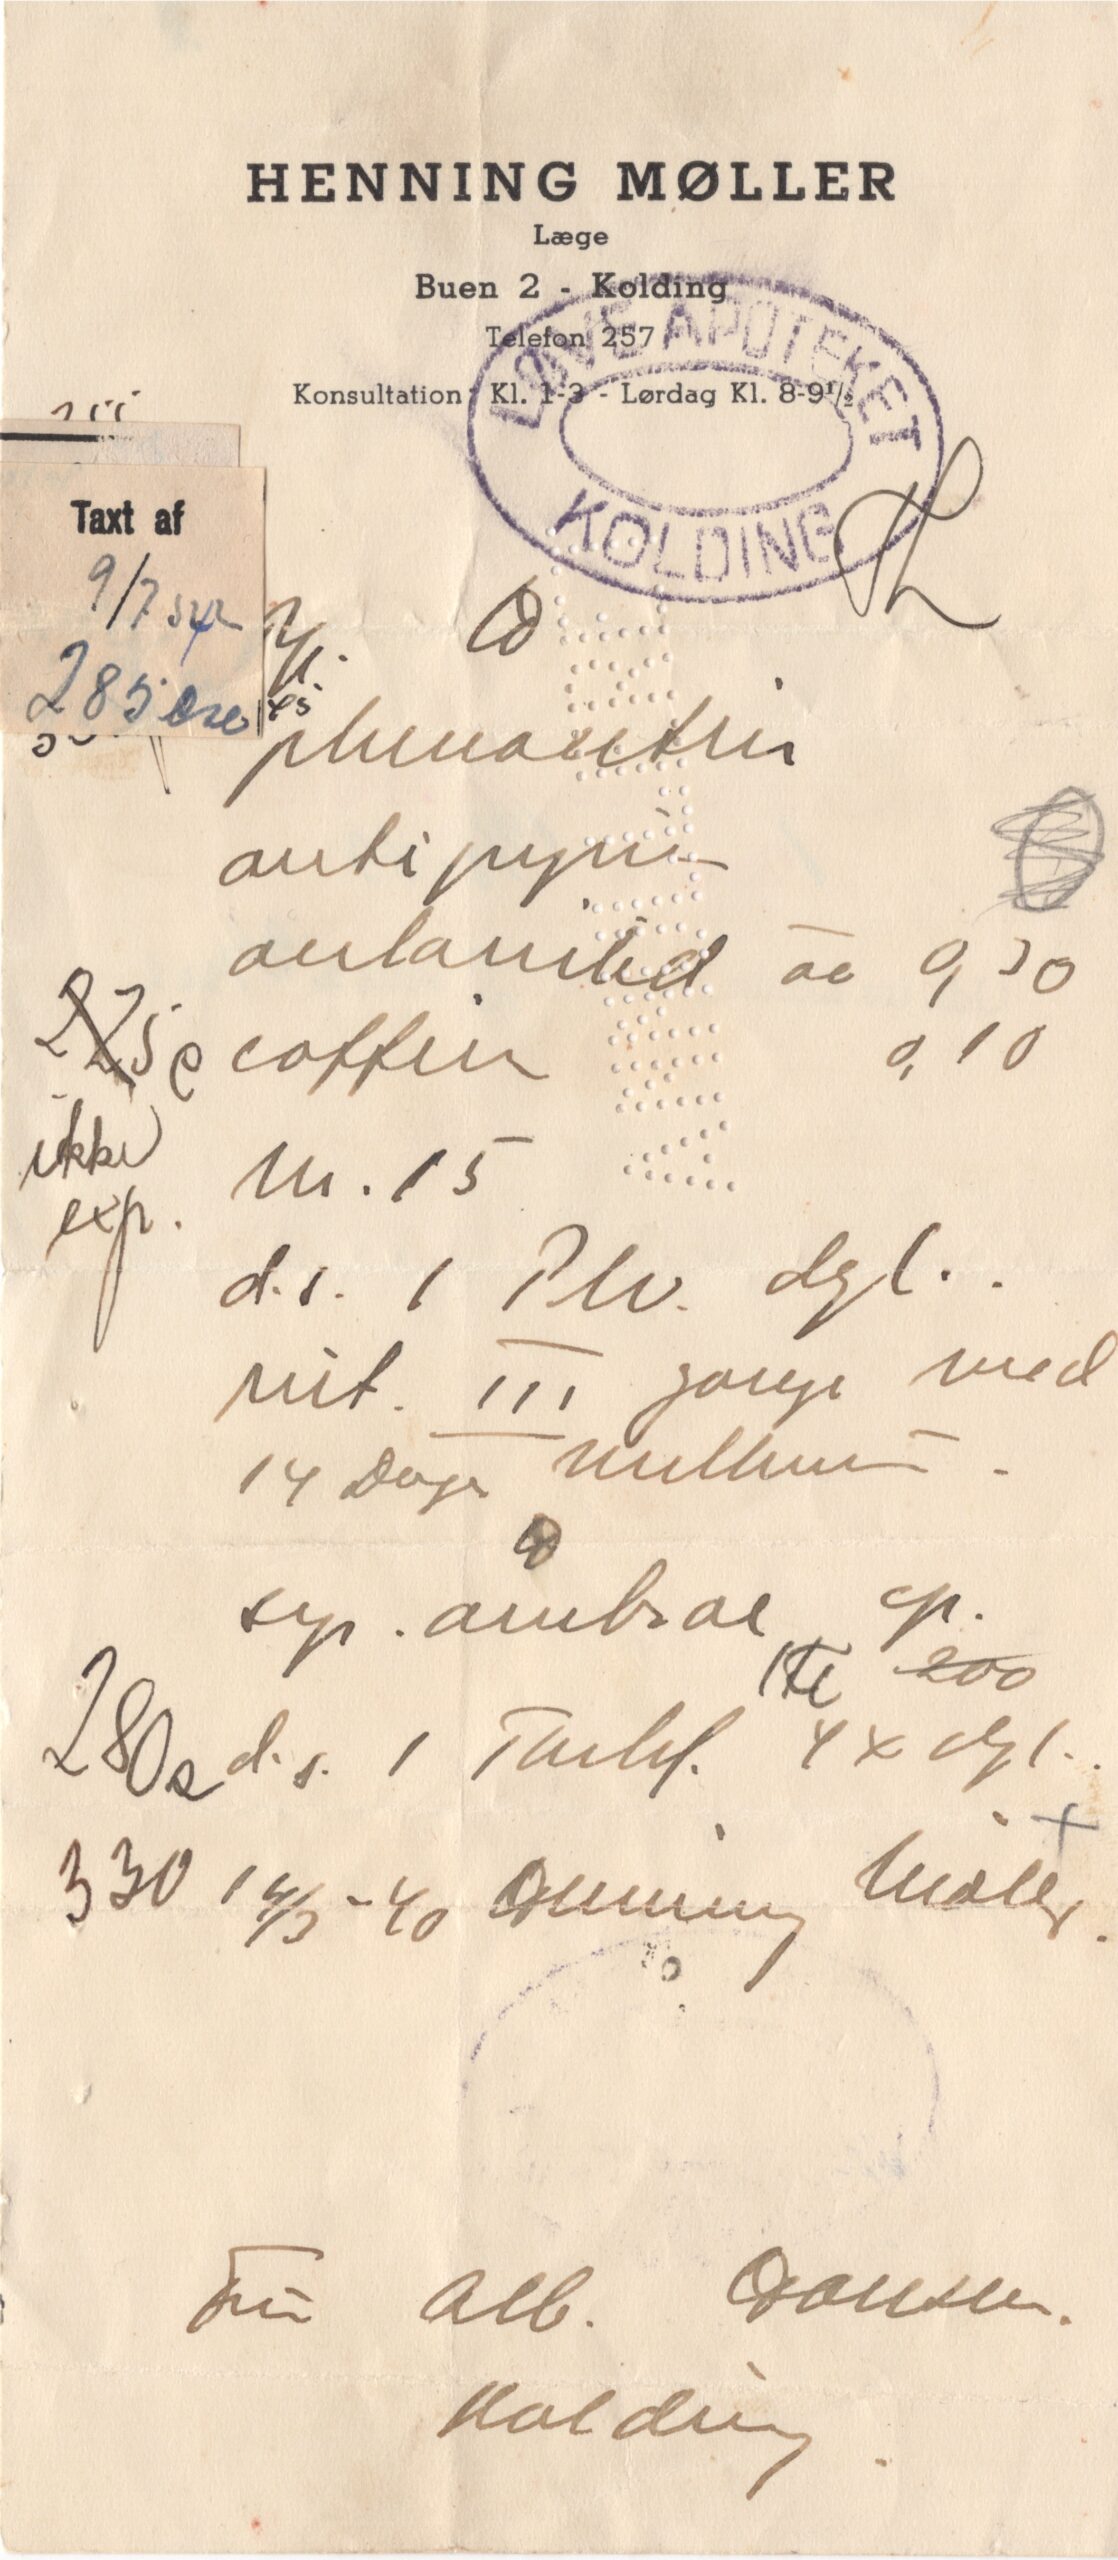 HENNING MØLLER
Læge
Buen 2 - Kolding
Telefon 257
Konsultation: Kl. 1-3 - Lørdag Kl. 8-9½
LØVE APOTEKET
KOLDING
Taxt af
9/7
285 øre
antipyrin
aa 0,30
225 ø coffein 0,10
ikke
exp.
N. 15
d.s. 1 Plv. dgl.
reit. III gange med
14 Dages mellemrum.
syp. ambrae cp.
200
280 ø d.s. 1 4 x dgl.
330 14/3-40 Henning Møller.
Fru Alb. Hansen.
Kolding.